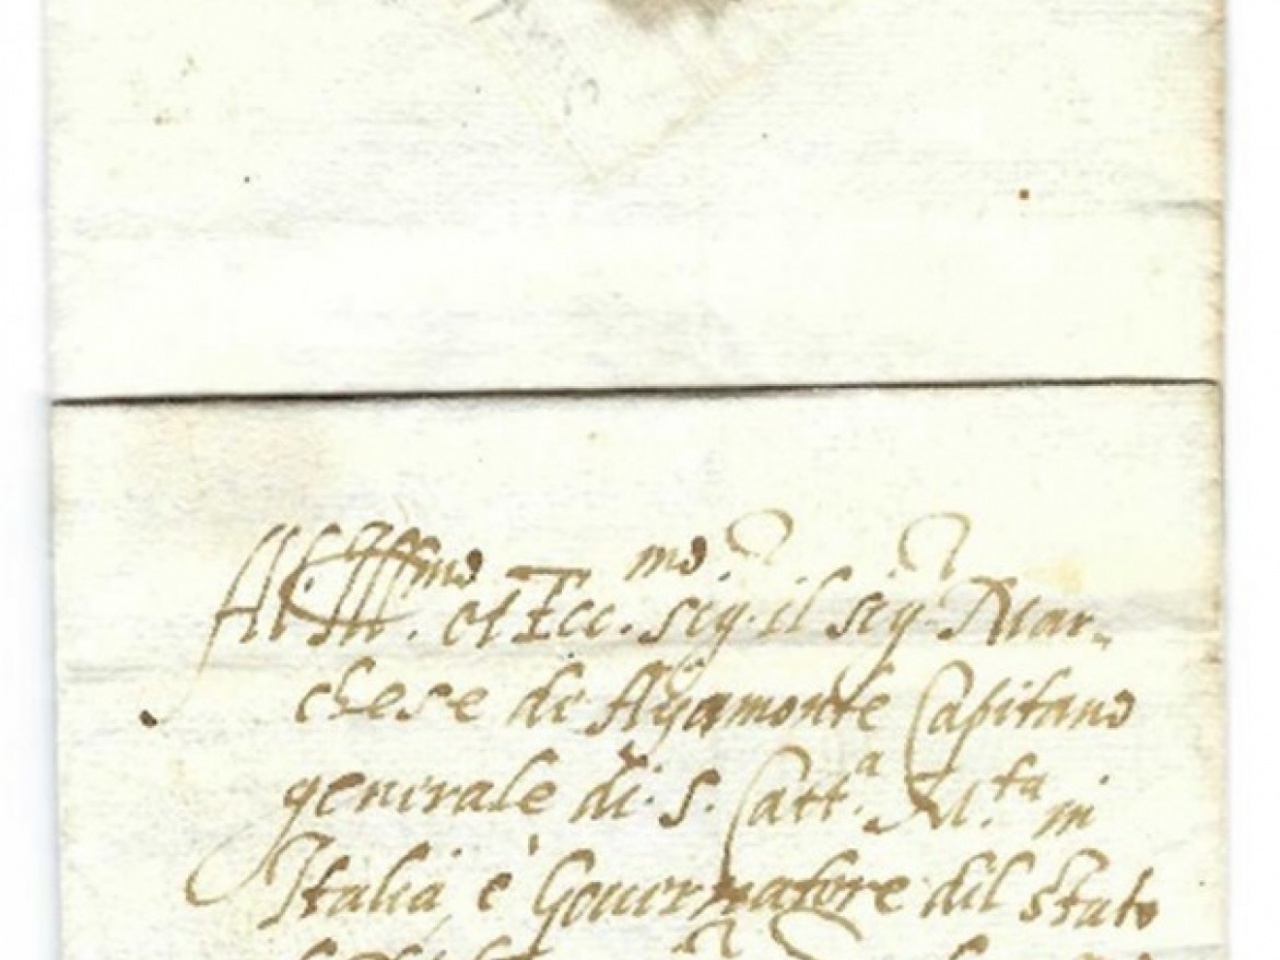 All Ill.mo et Ecc.mo sig. il sig. Mar-
chese di Ayamonte Capitano
generale di S. Catt.a M.ta in
Italia è Gouernatore dil Stato